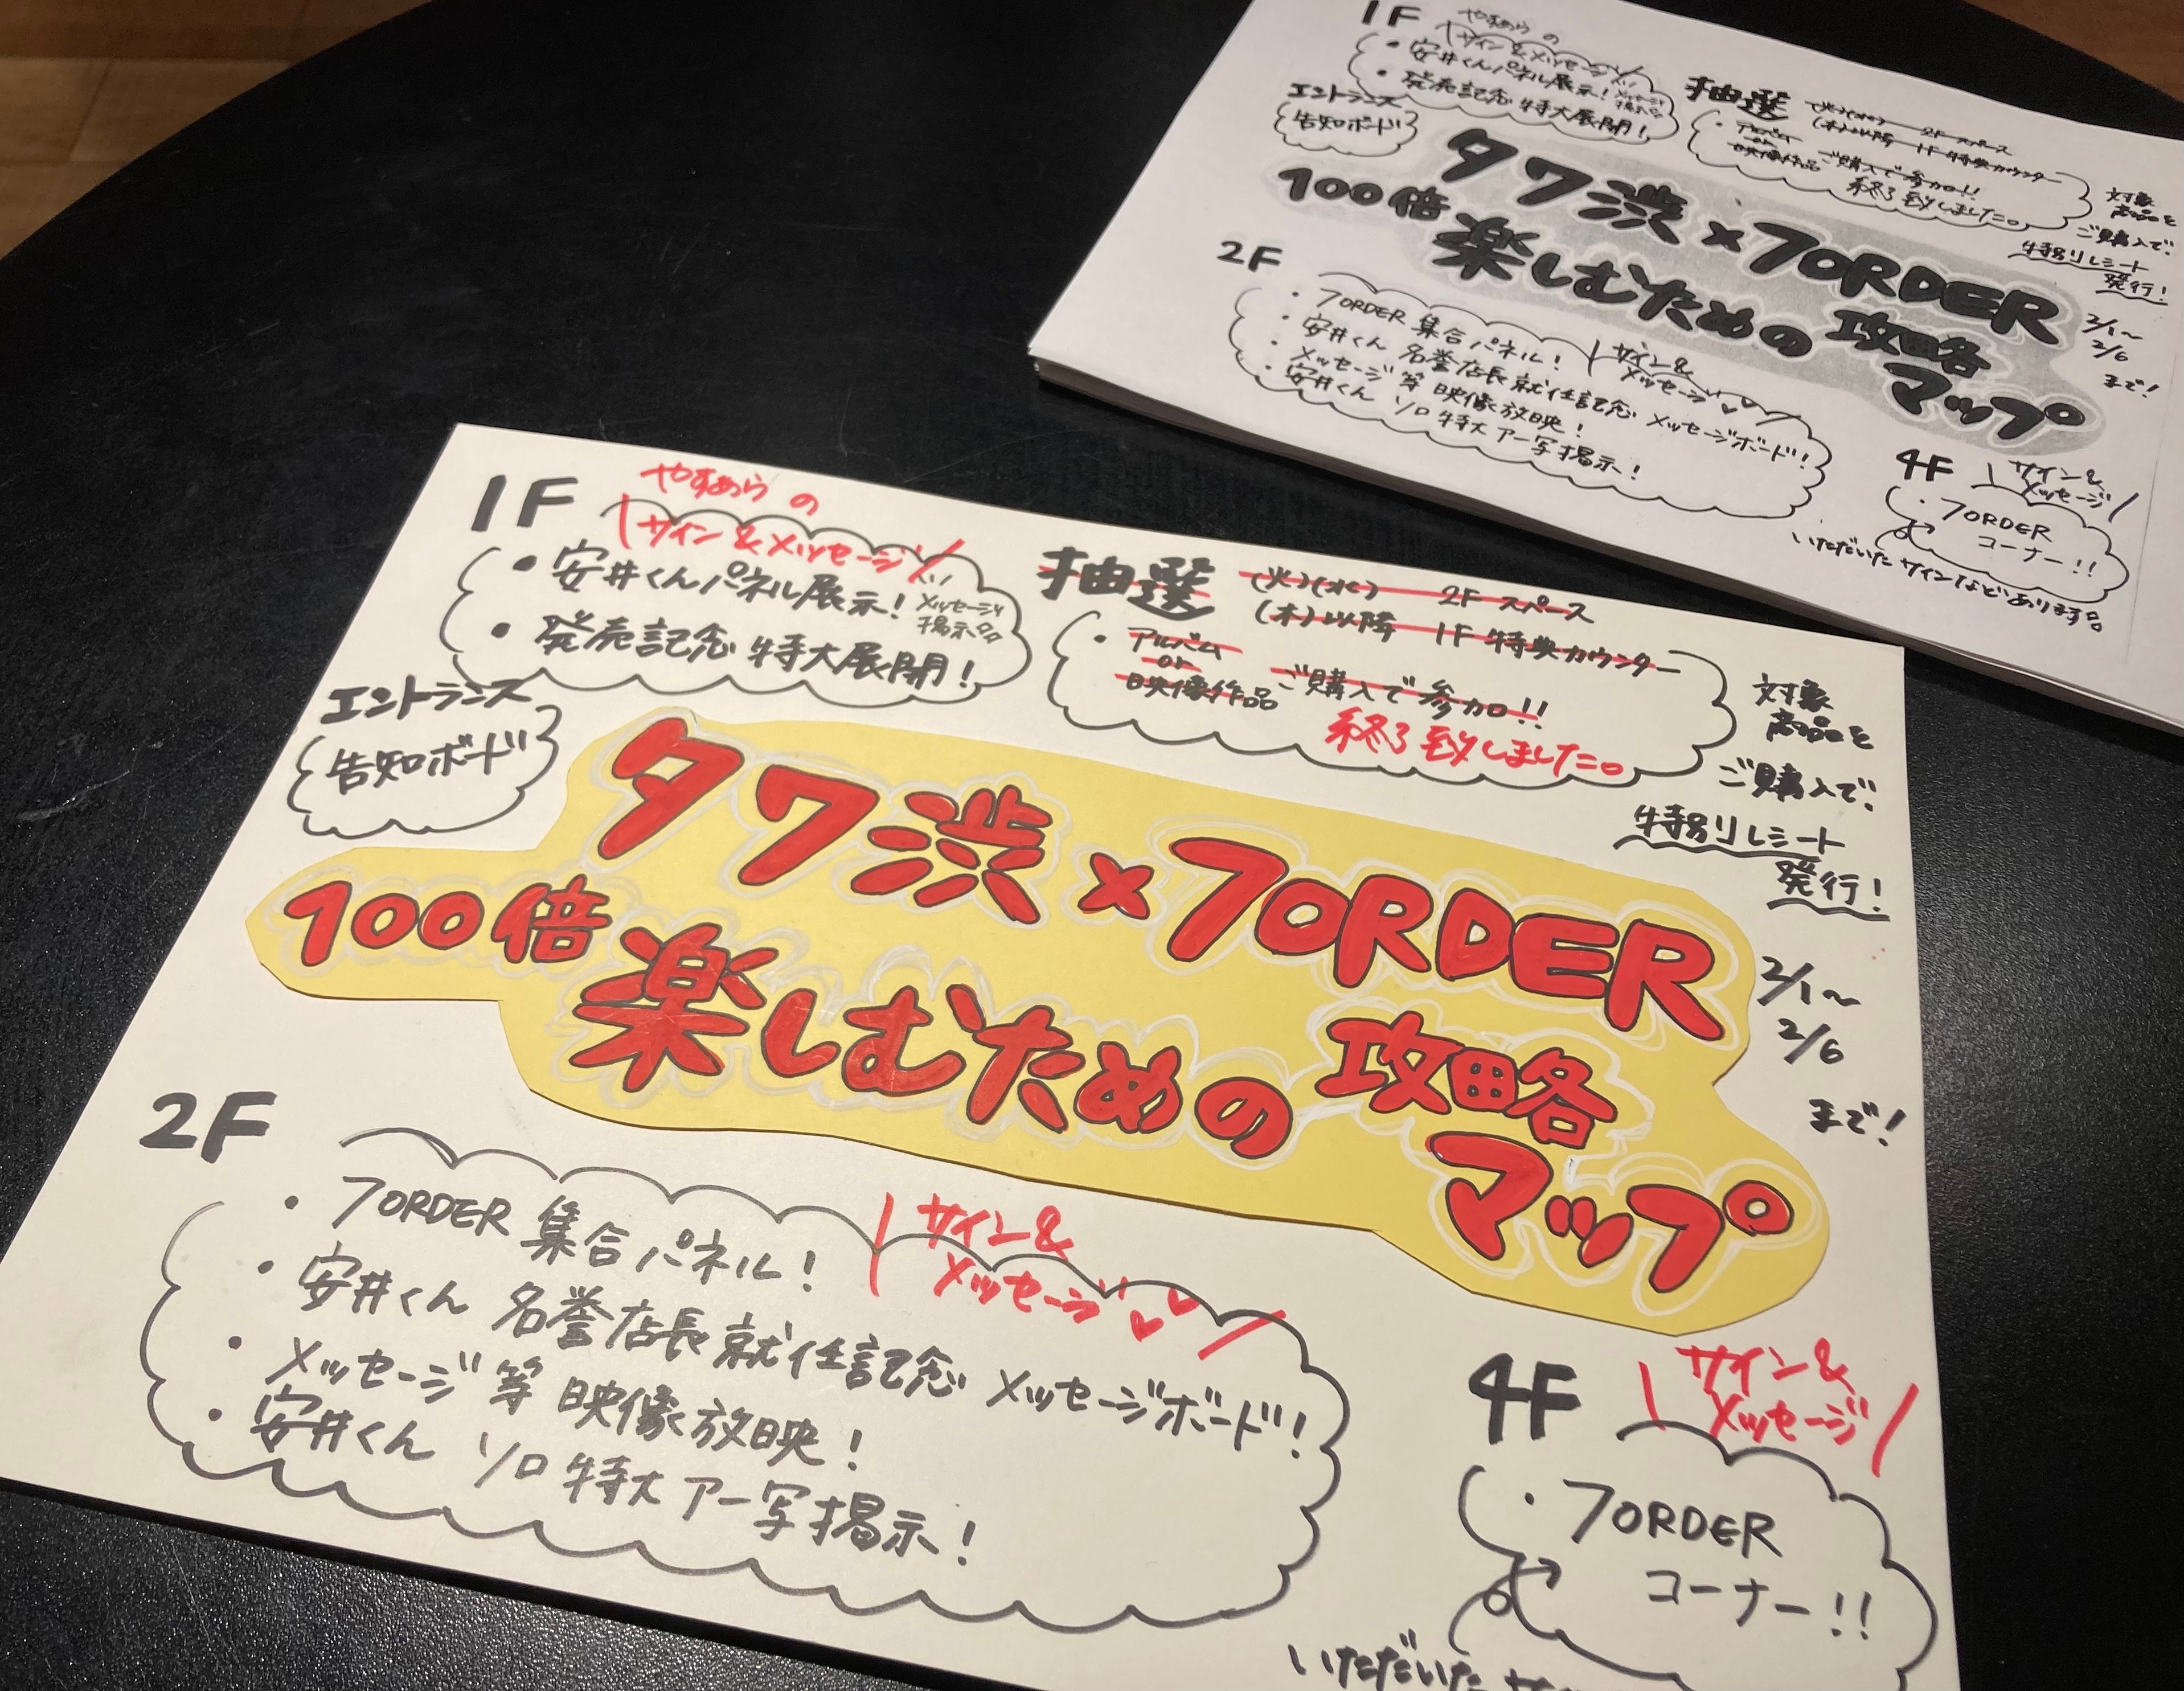 1F
やすあらの
サイン&メッセージ
・安井くんパネル展示!
メッセージ掲示品
・発売記念 特大展開!
エントランス
告知ボード
抽選
(火)(水) 2F スペース
(木)以降 1F 特典カウンター
・アルバム
or
映像作品
ご購入で参加!!
終了致しました。
対象
商品を
ご購入で、
特別レシート
発行!
2/1~
2/6
まで!
タワ渋×7ORDER
100倍
楽しむための
攻略
マップ
2F
・7ORDER 集合パネル!
サイン&
メッセージ
・安井くん 名誉店長就任記念 メッセージボード!
・メッセージ等 映像放映!
・安井くん ソロ特大アー写掲示!
4F
サイン&
メッセージ
・7ORDER
コーナー!!
いただいた サ
1F
やすあらの
サイン&メッセージ
・安井くんパネル展示!
・発売記念 特大展開!
エントランス
告知ボード
抽選
(火)(水) 2F スペース
(木)以降 1F 特典カウンター
・アルバム
or
映像作品
ご購入で参加!!
終了致しました。
対象
商品を
ご購入で、
特別レシート
発行!
2/1~
2/6
まで!
タワ渋×7ORDER
100倍
楽しむための
攻略
マップ
2F
・7ORDER 集合パネル!
サイン&
メッセージ
・安井くん 名誉店長就任記念 メッセージボード!
・メッセージ等 映像放映!
・安井くん ソロ特大アー写掲示!
4F
サイン&
メッセージ
・7ORDER
コーナー!!
いただいたサインなどあります。